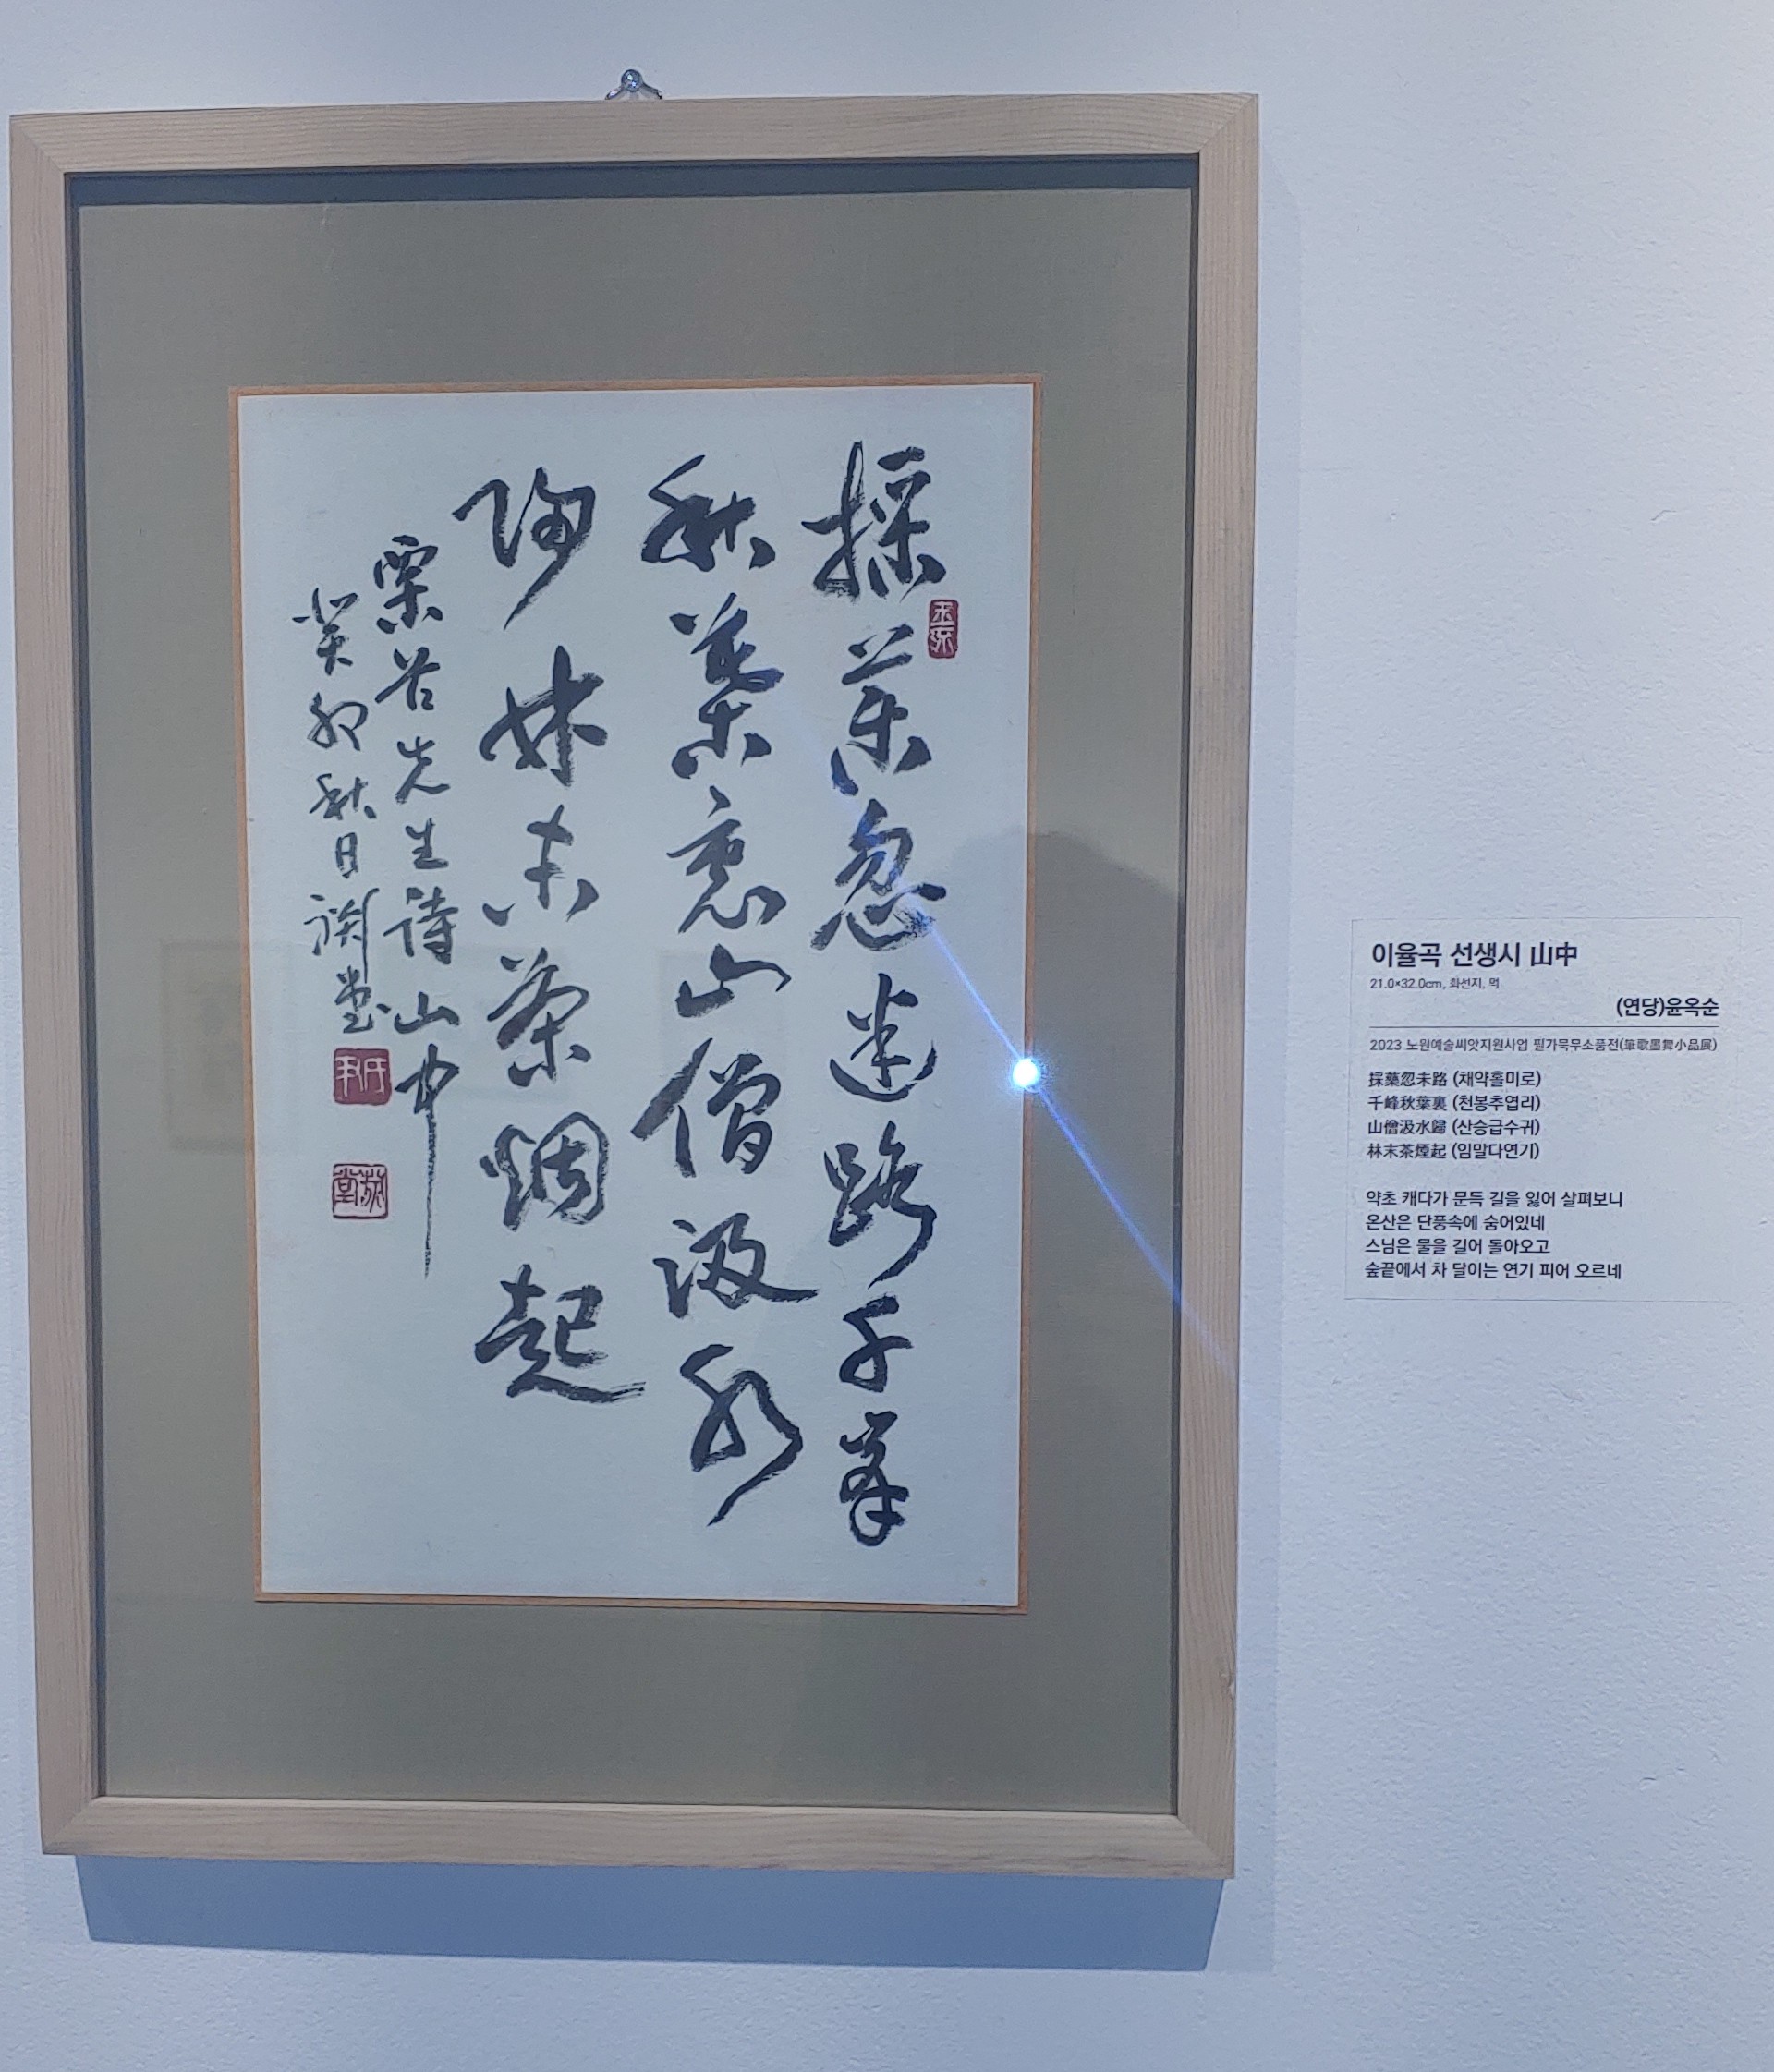 採藥忽迷路千峯
秋葉裏山僧汲水
歸林末茶烟起
栗谷先生詩山中
癸卯秋日淵堂
이율곡 선생시 山中
21.0×32.0cm, 화선지, 먹
(연당)윤옥순
2023 노원예술씨앗지원사업 필가묵무소품전(筆歌墨舞小品展)
採藥忽未路 (채약홀미로)
千峰秋葉裏 (천봉추엽리)
山僧汲水歸 (산승급수귀)
林末茶煙起 (임말다연기)
약초 캐다가 문득 길을 잃어 살펴보니
온산은 단풍속에 숨어있네
스님은 물을 길어 돌아오고
숲끝에서 차 달이는 연기 피어 오르네